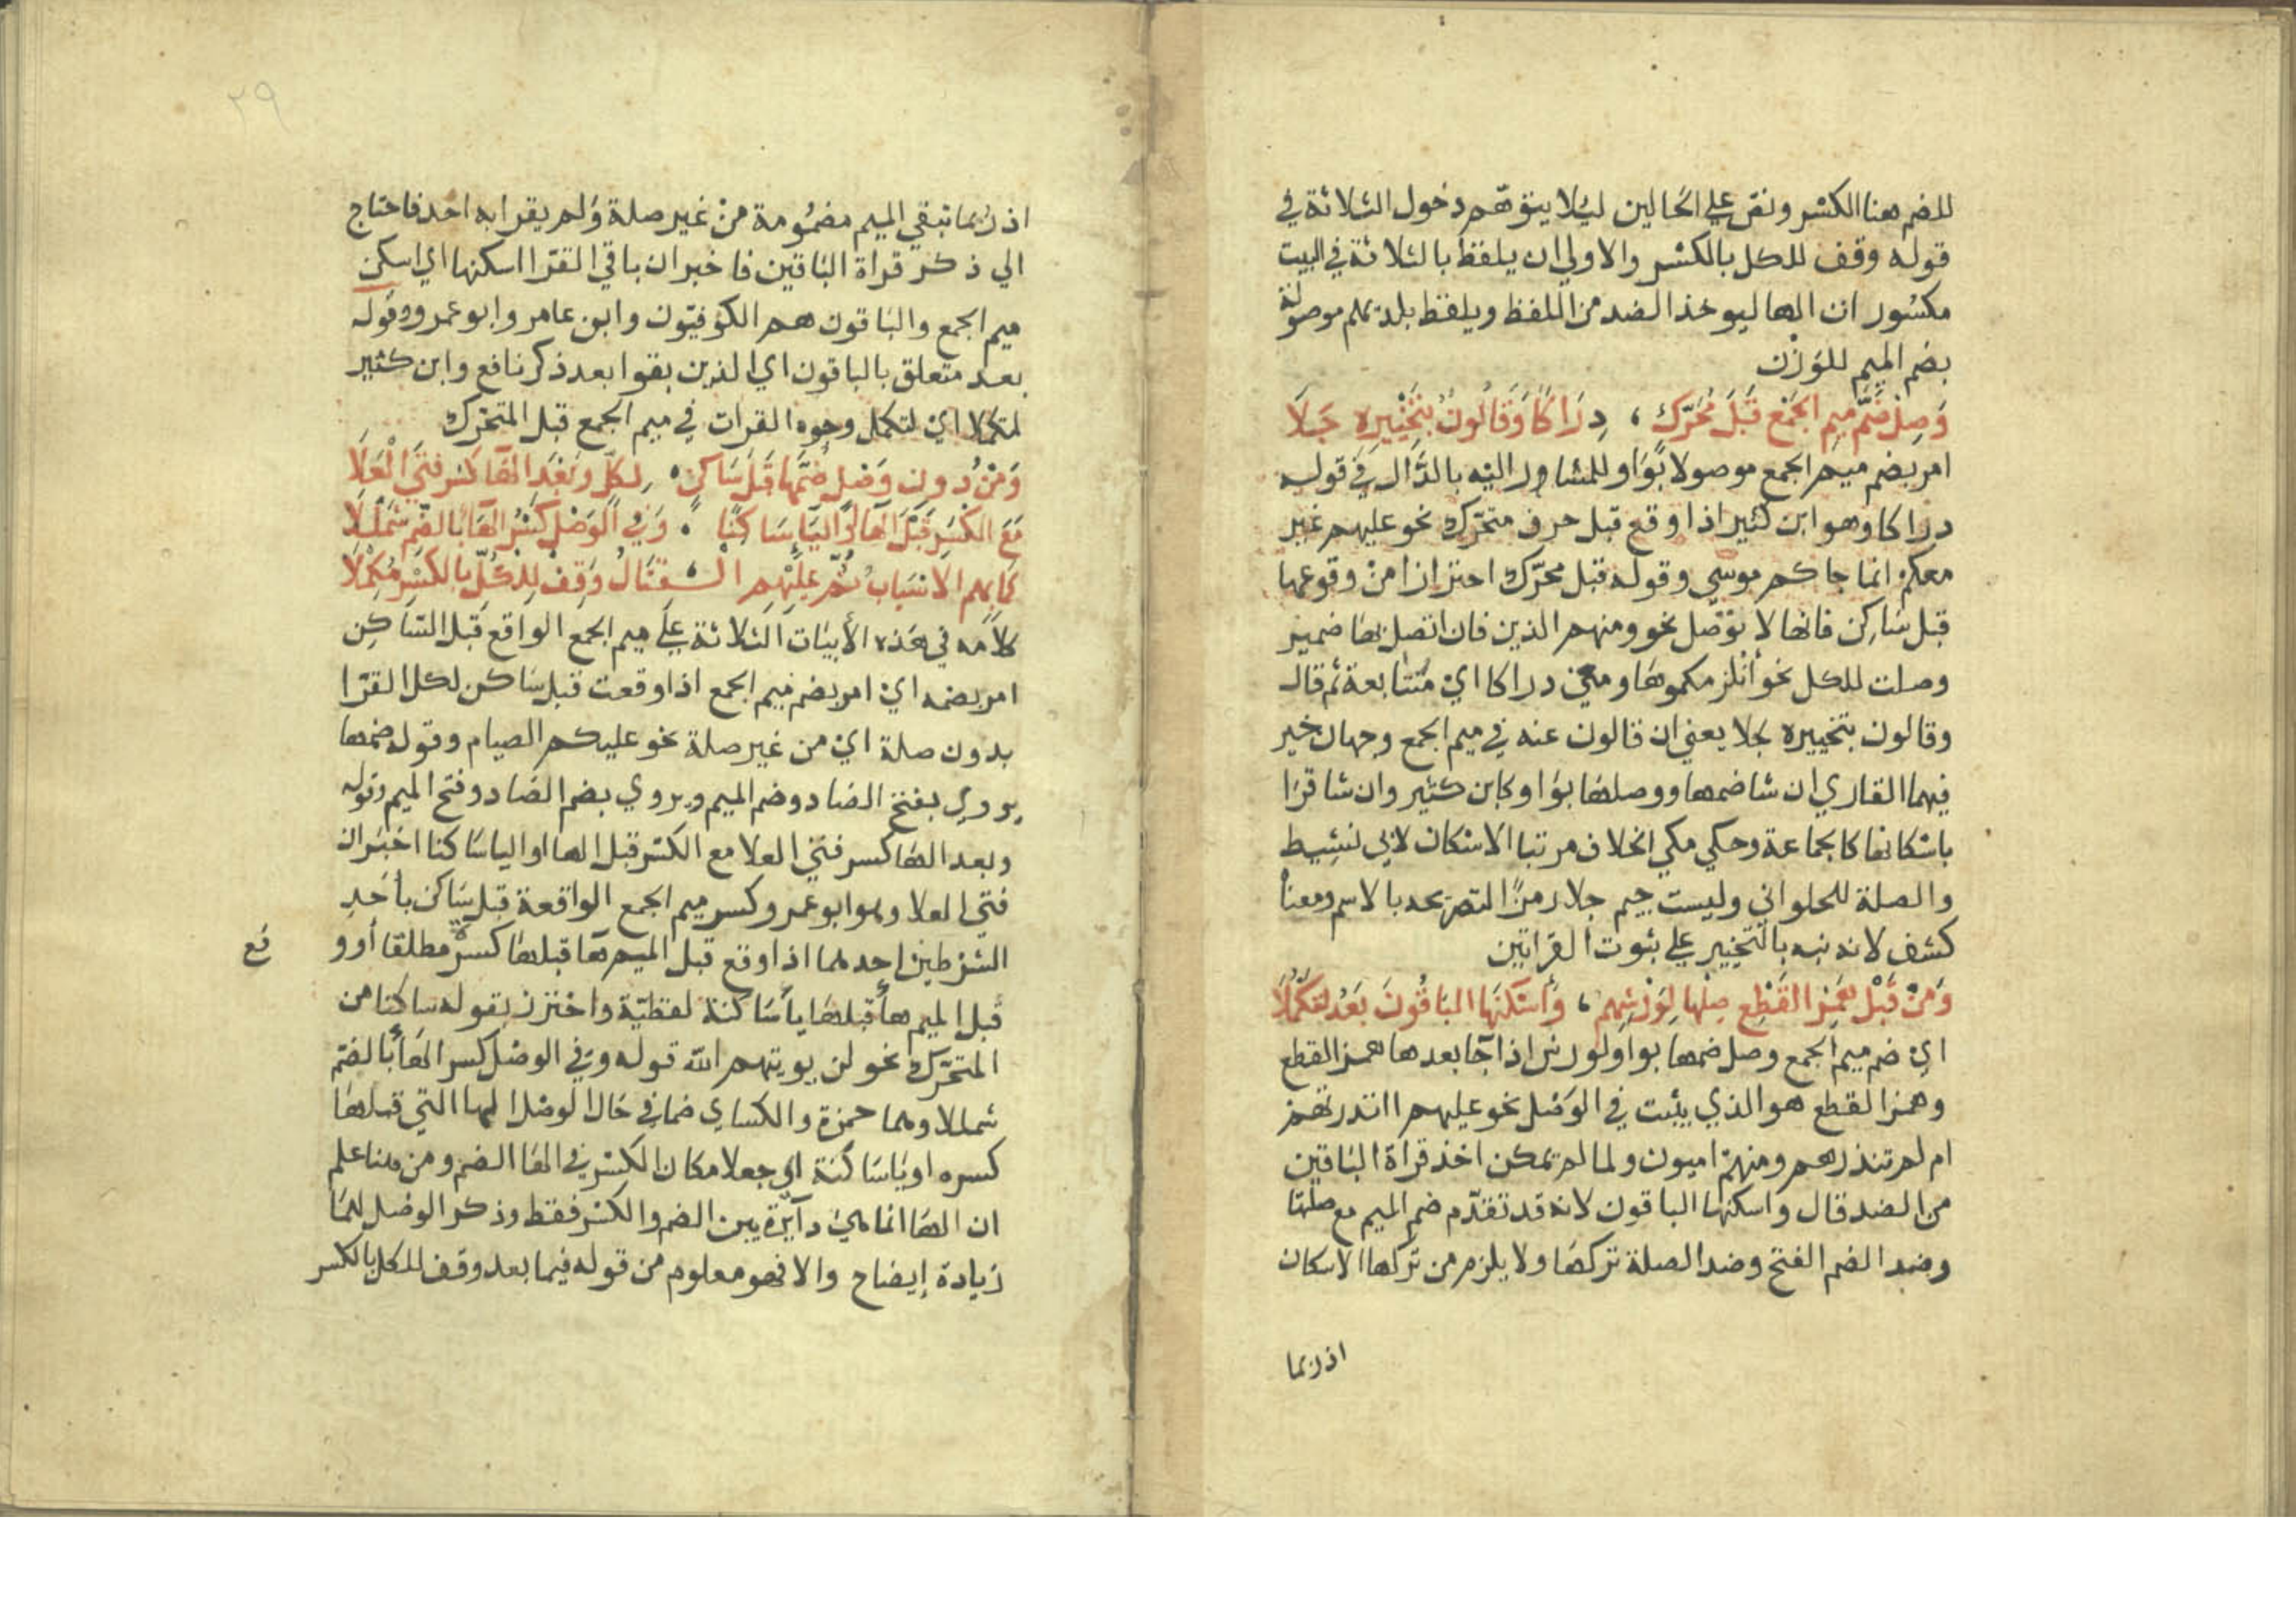 للضم هنا الكسر ونص علي الحالين ليلا يتوهم دخول الثلاثة في
قوله وقف للكل بالكسر والاولي ان يلفظ بالثلاثة في البيت
مكسور ان الها ليوخذ الضد من اللفظ ويلفظ بلديهلم موصولة
بضم الميم للوزن
وَصِلْ ضَمَّ مِيمِ الجَمْعِ قَبْلَ مُحَرَّكٍ ، دِرَاكًا وَقَالُونٌ بِتَخْيِيرِهِ جَلَا
امر بضم ميم الجمع موصولا بواو للمشاور اليه بالدال في قوله
دراكا وهو ابن كثير اذا وقع قبل حرف متحرك نحو عليهم غير
معكم انما جاكم موسي وقوله قبل محرك احترازا من وقوعها
قبل ساكن فانها لا توصل نحو ومنهم الذين فان اتصل بها ضمير
وصلت للكل نحو انلزمكموها ومعني دراكا اي متتابعة ثم قال
وقالون بتخييره جلا يعني ان قالون عنه في ميم الجمع وجهان خير
فيهما القاري ان شا ضمها ووصلها بواو كابن كثير وان شا قرا
باسكانها كالجماعة وحكي مكي الخلاف مرتبا الاسكان لابي نشيط
والصلة للحلواني وليست جيم جلا رمزا لتصريحه بالاسم ومعناه
كشف لانه نبه بالتخيير علي ثبوت القراتين
وَمِنْ قَبْلِ هَمْزِ القَطْعِ صِلْهَا لِوَرْشِهِمْ ، وَأَسْكَنَهَا البَاقُونَ بَعْدُ لتَكْمُلَا
اي ضم ميم الجمع وصل ضمها بواو لورش اذا جا بعدها همز القطع
وهمز القطع هو الذي يثبت في الوصل نحو عليهم اانذرتهم
ام لم تنذرهم ومنهم اميون ولما لم يمكن اخذ قراة الباقين
من الضد قال واسكنها الباقون لانه قد تقدم ضم الميم مع صلتها
وضد الضم الفتح وضد الصلة تركها ولا يلزم من تركها الاسكان
اذ ربما
٢٩
اذ ربما تبقي الميم مضمومة من غير صلة ولم يقرا به احد فاحتاج
الي ذكر قراة الباقين فاخبر ان باقي القرا اسكنها اي اسكن
ميم الجمع والباقون هم الكوفيون وابن عامر وابو عمرو وقوله
بعد متعلق بالباقون اي الذين بقوا بعد ذكر نافع وابن كثير
لتكملا اي لتكمل وجوه القرات في ميم الجمع قبل المتحرك
وَمِنْ دُونِ وَصْلٍ ضَمُّهَا قَبْلَ سَاكِنٍ ، لِكُلٍّ وَبَعْدَ الهَا كَسْرُ فَتَى العَلَا
مَعَ الكَسْرِ قَبْلَ الهَا أَوِ اليَاءِ سَاكِنًا ، وَفِي الوَصْلِ كَسْرُ الهَا بِالضَّمِّ شَمْلَلَا
كَمَا بِهِمِ الاَسْبَابُ ثُمَّ عَلَيْهِمِ القِتَالُ وَقِفْ لِلكُلِّ بِالكَسْرِ مُكْمِلَا
كلامه في هذه الأبيات الثلاثة علي ميم الجمع الواقع قبل الساكن
امر بضمه اي امر بضم ميم الجمع اذا وقعت قبل ساكن لكل القرا
بدون صلة اي من غير صلة نحو عليكم الصيام وقوله ضمها
يروي بفتح الضاد وضم الميم ويروي بضم الضاد وفتح الميم وقوله
وبعد الها كسر فتي العلا مع الكسر قبل الها او اليا ساكنا اخبر ان
فتي العلا وهو ابو عمرو كسر ميم الجمع الواقعة قبل ساكن باحد
الشرطين احدهما اذا وقع قبل الميم ها قبلها كسرة مطلقا أو و
قع
قبل الميم ها قبلها يا ساكنة لفظية واحترز بقوله ساكنا من
المتحرك نحو لن يوتيهم الله قوله وفي الوصل كسر الها بالضم
شمللا وهما حمزة والكساي ضما في حال الوصل الها التي قبلها
كسره او يا ساكنة اي جعلا مكان الكسر في الها الضم ومن هنا علم
ان الها انما هي دآيرة بين الضم والكسر فقط وذكر الوصل لهما
زيادة إيضاح والا فهو معلوم من قوله فيما بعد وقف للكل بالكسر